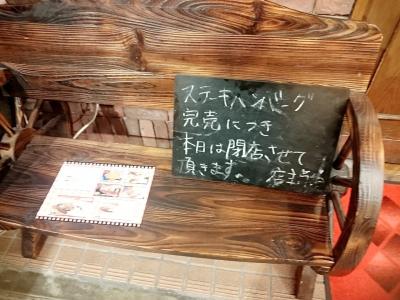 ステーキハンバーグ
完売につき
本日は閉店させて
頂きます。 店主